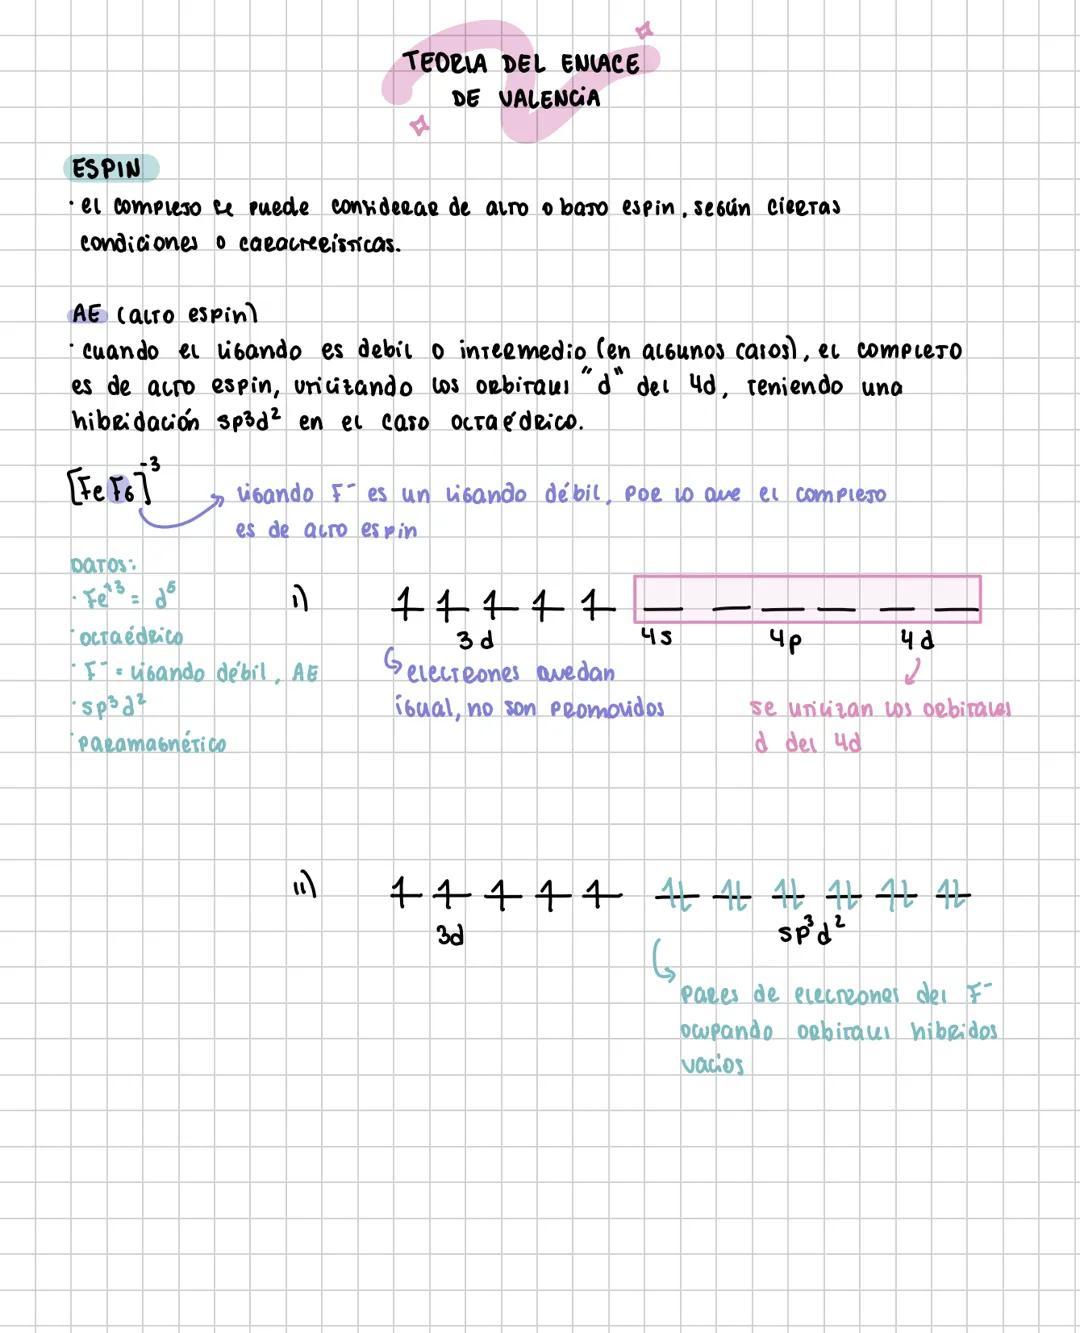 TEORIA DEL ENLACE
DE VALENCIA
ESPIN
· el complejo se puede considerar de alto o bajo espin, según ciertas
condiciones o características.
AE (alto espin)
· cuando el ligando es debil o intermedio (en algunos casos), el complejo
es de alto espin, utilizando los orbitales "d" del 4d, teniendo una
hibridación sp³d² en el caso octaédrico.
[FeF₆]⁻³
ligando F⁻ es un ligando débil, por lo que el complejo
es de alto espin
Datos:
· Fe⁺³ = d⁵
· octaédrico
· F⁻ = ligando débil, AE
· sp³d²
· paramagnético
i) 1 1 1 1 1
3d 4s 4p 4d
electrones quedan
igual, no son promovidos
se utilizan los orbitales
d del 4d
ii) 1 1 1 1 1 1l 1l 1l 1l 1l 1l
3d sp³d²
pares de electrones del F⁻
ocupando orbitales hibridos
vacios